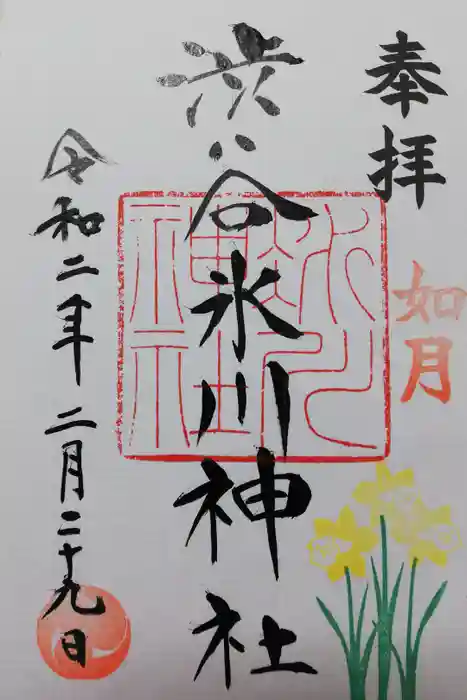 奉拝
如月
渋谷氷川神社
氷川神社
令和二年二月二十九日